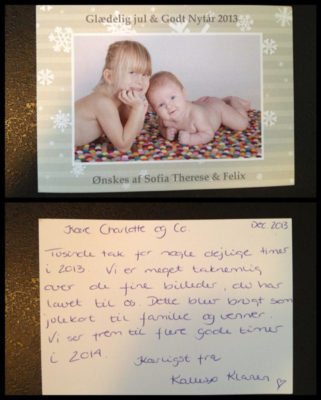 Glædelig jul & Godt Nytår 2013
Ønskes af Sofia Therese & Felix
Kære Charlotte og Co. Dec. 2013
Tusinde tak for nogle dejlige timer
i 2013. Vi er meget taknemlig
over de fine billeder, du har
lavet til os. Dette blev brugt som
julekort til familie og venner.
Vi ser frem til flere gode timer
i 2014.
Kærligst fra